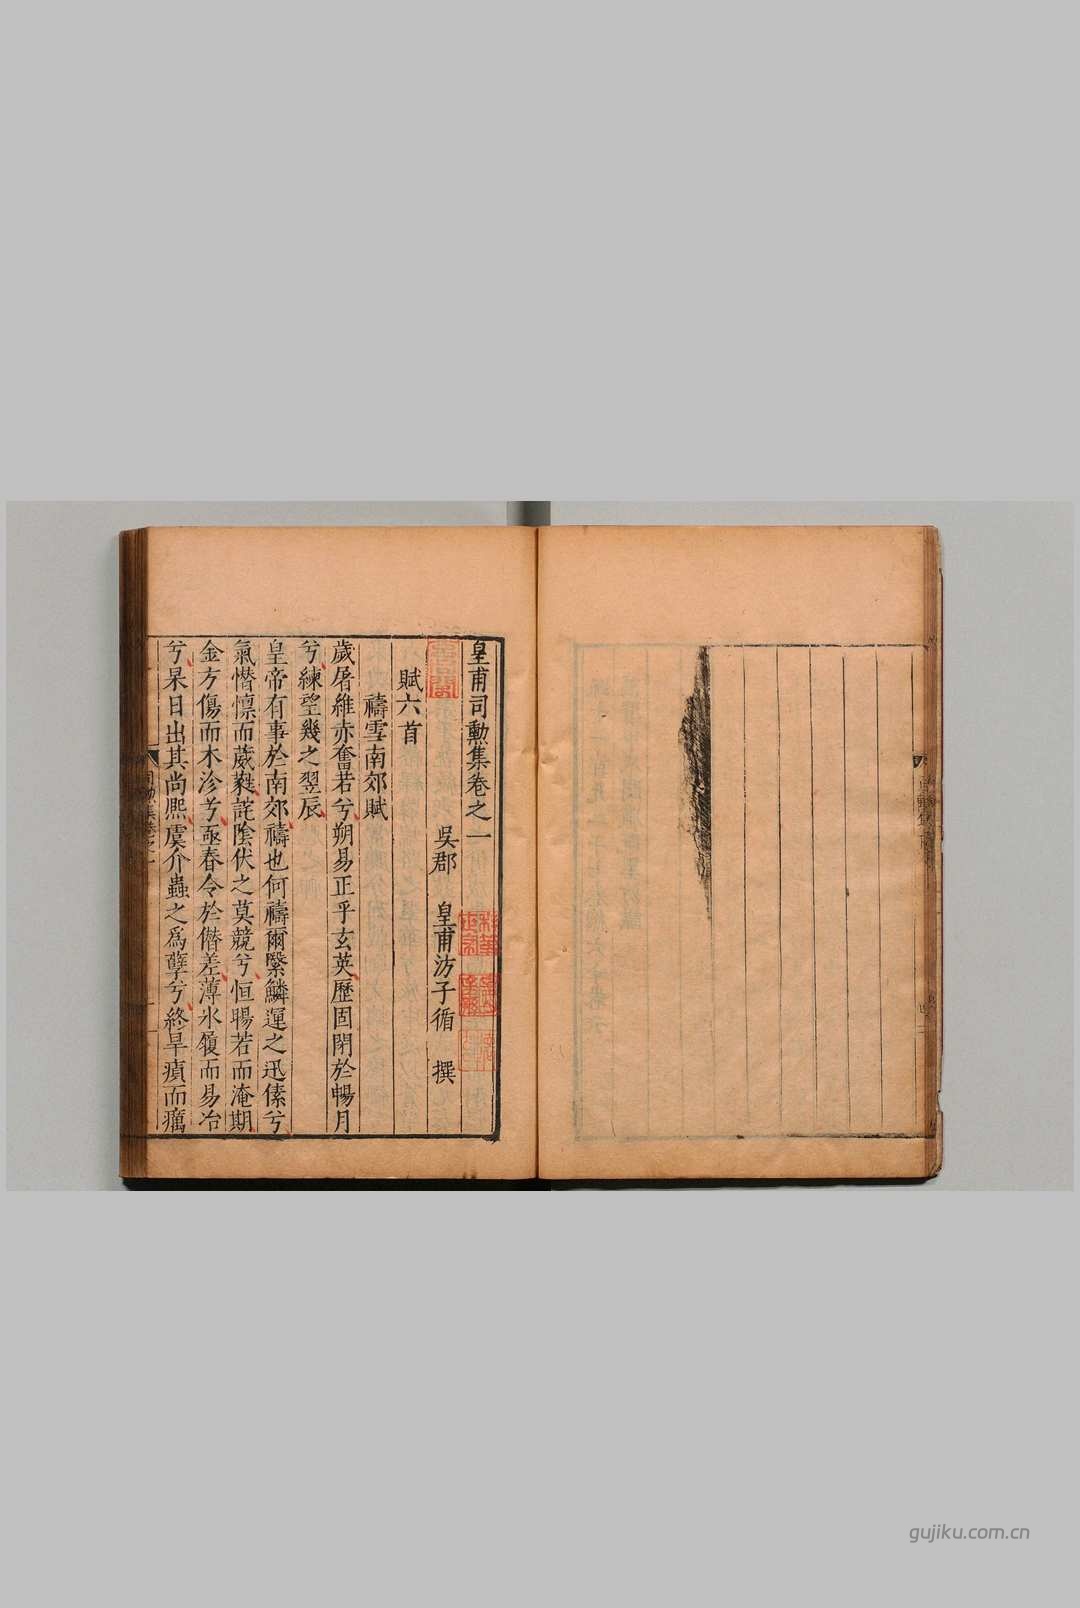 皇甫司勳集卷之一
吳郡 皇甫汸子循 撰
賦六首
禱雪南郊賦
歲屠維赤奮若兮朔易正乎玄英歷固閉於暢月
兮練望幾之翌辰
皇帝有事於南郊禱也何禱爾繄鱗運之迅傃兮
氣憯懍而葳蕤詫陰伏之莫競兮恒暘若而淹期
金方傷而木沴兮亟春令於僭差薄氷履而易冶
兮杲日出其尚熈虞介蟲之為孽兮終旱瘨而癘
gujiku.com.cn